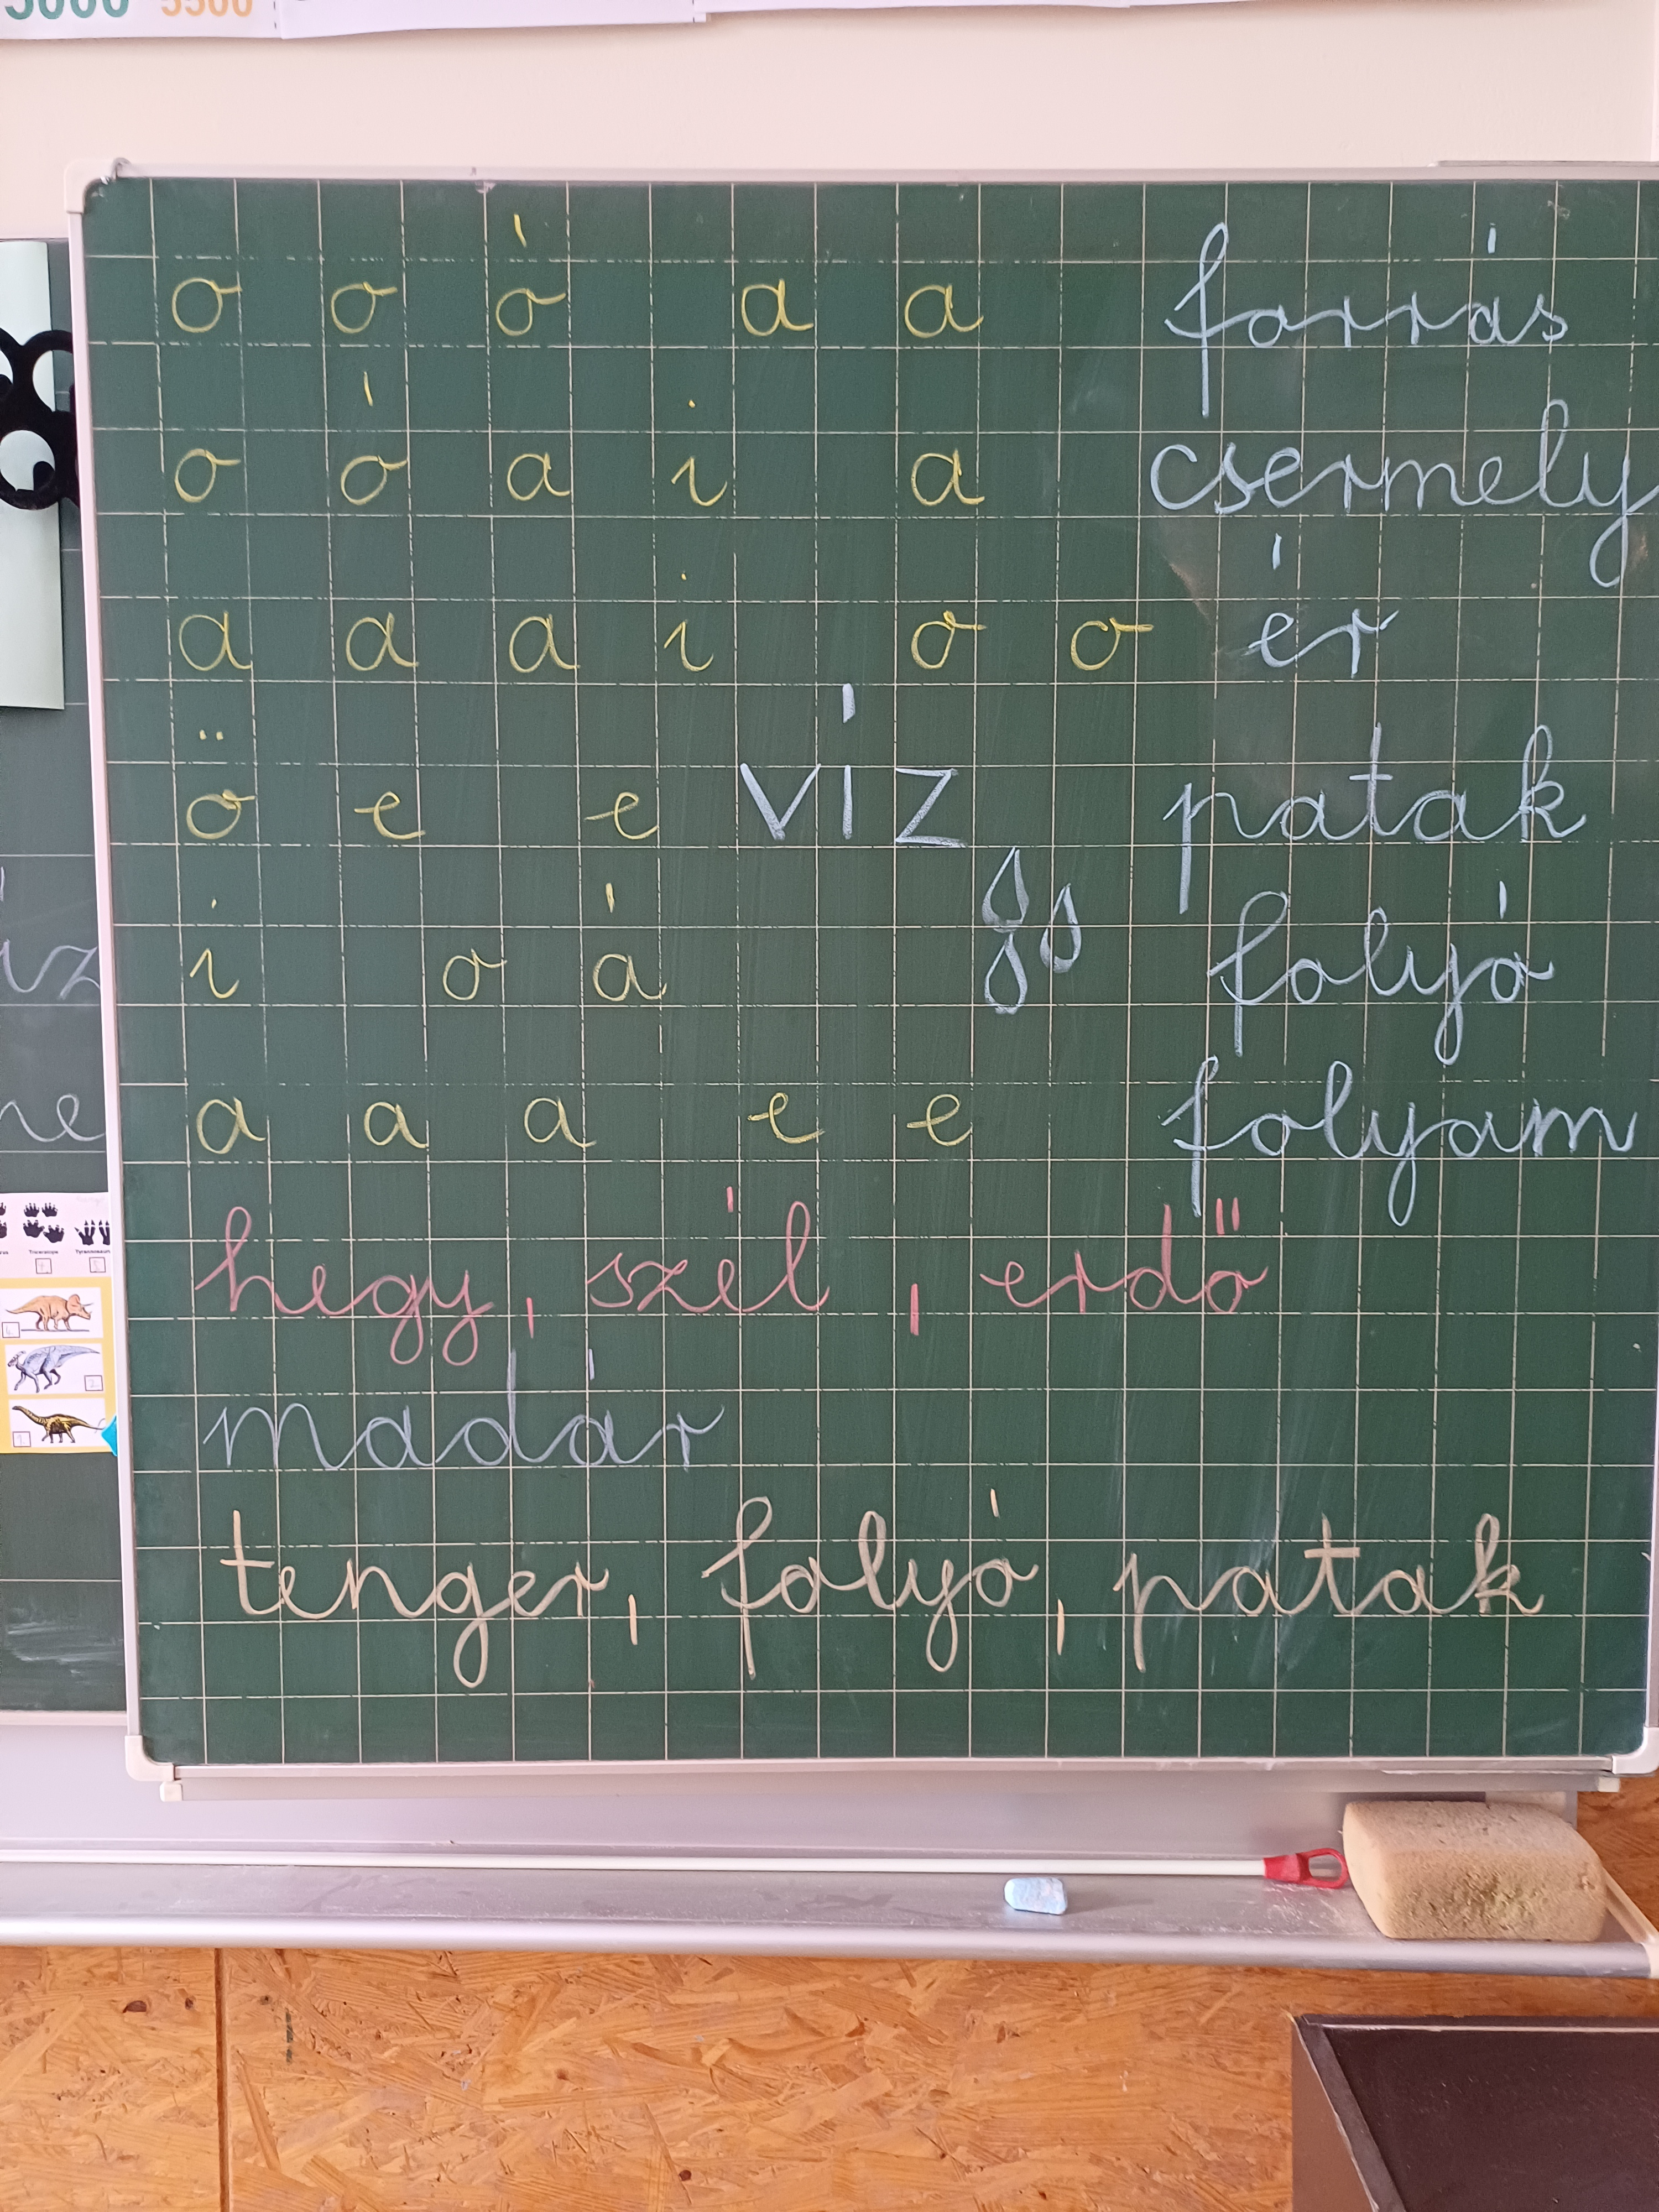 5000 5500
o o ó a a forrás
o ó a i a csermely
a a a i o o ér
ö e e víz patak
i o á folyó
a a a e e folyam
hegy, szél, erdő
madár
tenger, folyó, patak
Triceratops